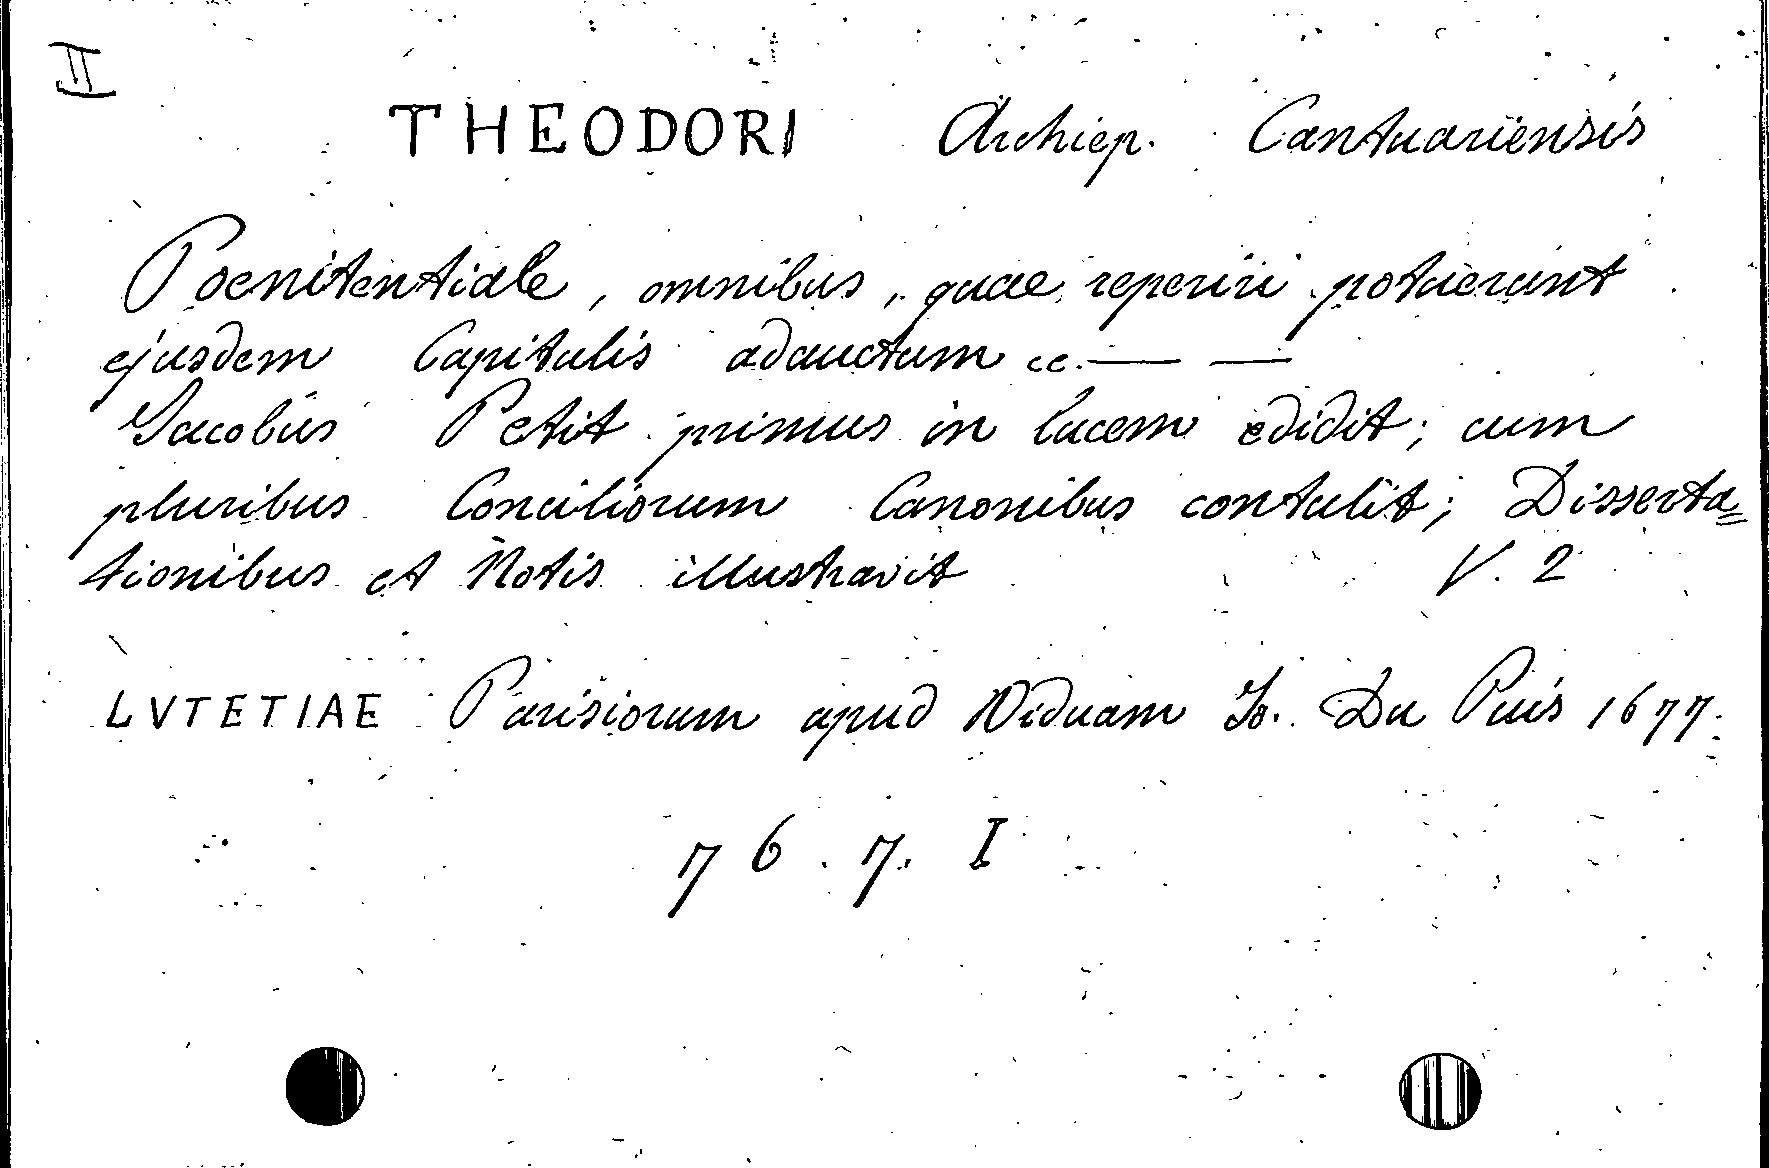 II
THEODORI Archiep. Cantuariensis
Poenitentiale, omnibus, quae reperiri potuerunt
ejusdem Capitulis adauctum cc. — —
Jacobus Petit primus in lucem edidit; cum
pluribus Conciliorum Canonibus contulit; Disserta=
tionibus et Notis illustravit V. 2
LVTETIAE Parisiorum apud Viduam Jo. Du Puis 1677.
76.7. I